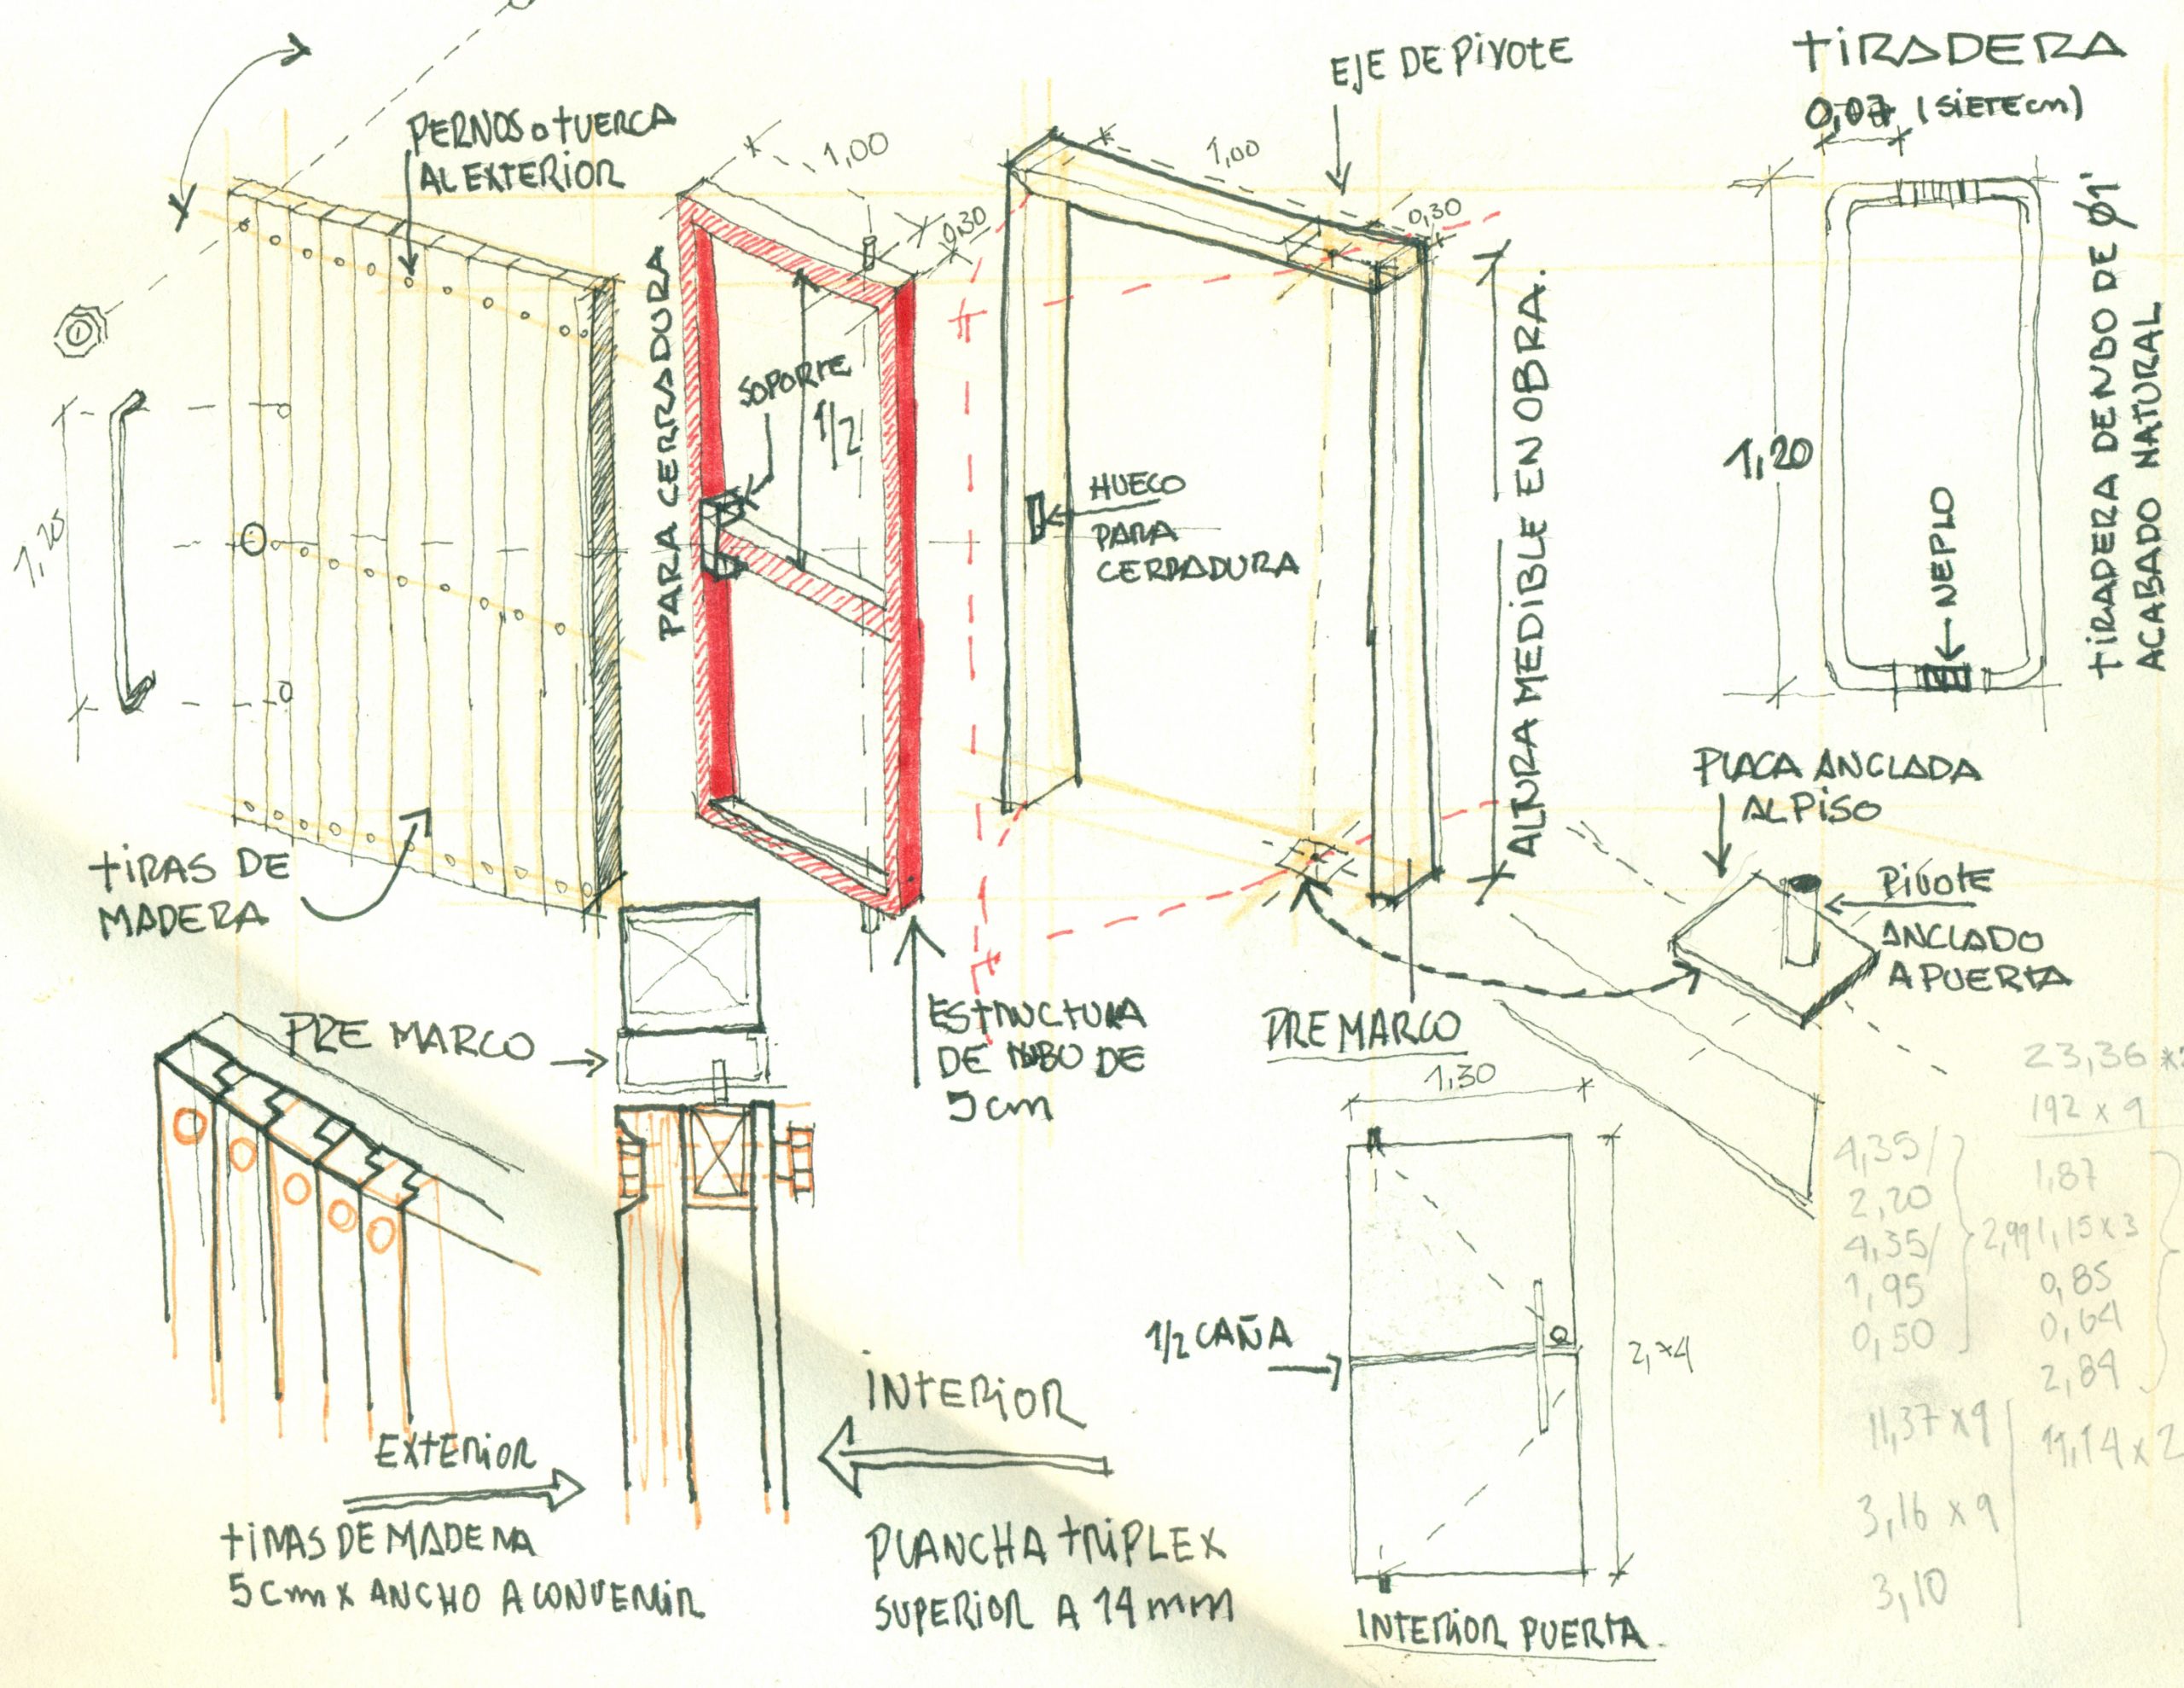 EJE DE PIVOTE
TIRADERA
0,07 (SIETE cm)
PERNOS o TUERCA
AL EXTERIOR
1,00
0,30
1,00
0,30
PARA CERRADURA
SOPORTE
1/2
HUECO
PARA
CERRADURA
ALTURA MEDIBLE EN OBRA.
1,20
1,20
NEPLO
TIRADERA DE TUBO DE Ø1"
ACABADO NATURAL
TIRAS DE
MADERA
PLACA ANCLADA
AL PISO
PIVOTE
ANCLADO
A PUERTA
PRE MARCO
ESTRUCTURA
DE TUBO DE
5 cm
PRE MARCO
1,30
1/2 CAÑA
INTERIOR
EXTERIOR
TIRAS DE MADERA
5 cm x ANCHO A CONVENIR
PLANCHA TRIPLEX
SUPERIOR A 14 mm
INTERIOR PUERTA
23,36
192 x 9
4,35
2,20
4,35
1,95
0,50
2,99
1,87
1,15 x 3
0,85
0,64
2,84
11,37 x 9
11,14 x 2
3,16 x 9
3,10